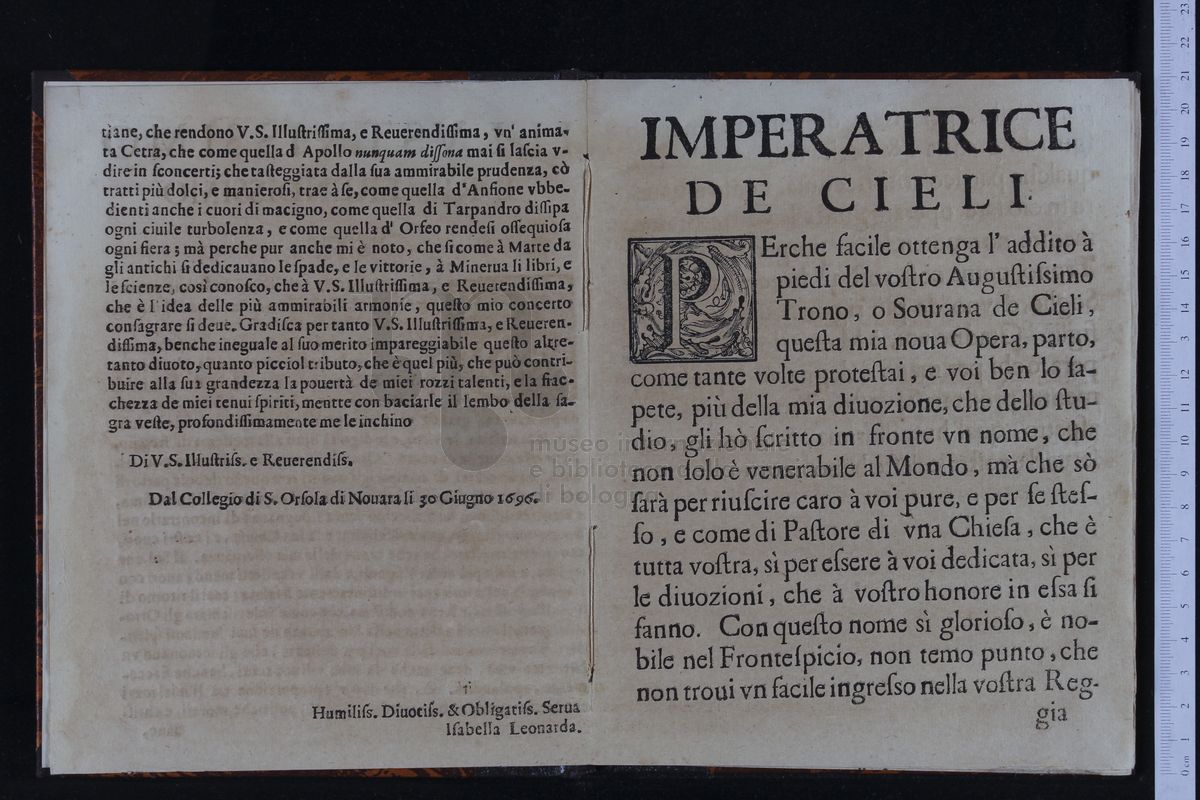 tiane, che rendono V.S. Illuſtriſſima, e Reuerendiſſima, vn' anima-
ta Cetra, che come quella d Apollo nunquam diſſona mai ſi laſcia v-
dire in ſconcerti; che taſteggiata dalla ſua ammirabile prudenza, cõ
tratti più dolci, e manieroſi, trae à ſe, come quella d'Anfione vbbe-
dienti anche i cuori di macigno, come quella di Tarpandro diſſipa
ogni ciuile turbolenza, e come quella d' Orfeo rendeſi oſſequioſa
ogni fiera; mà perche pur anche mi è noto, che ſi come à Marte da
gli antichi ſi dedicauano le ſpade, e le vittorie, à Minerua li libri, e
le ſcienze, così conoſco, che à V.S. Illuſtriſſima, e Reuerendiſſima,
che è l' idea delle più ammirabili armonie, queſto mio concerto
conſagrare ſi deue. Gradiſca per tanto V.S. Illuſtriſſima, e Reueren-
diſſima, benche ineguale al ſuo merito impareggiabile queſto altre-
tanto diuoto, quanto picciol tributo, che è quel più, che può contri-
buire alla ſua grandezza la pouertà de miei rozzi talenti, e la fiac-
chezza de miei tenui ſpiriti, mentte con baciarle il lembo della ſa-
gra veſte, profondiſſimamente me le inchino
Di V.S. Illuſtriſs. e Reuerendiſs.
Dal Collegio di S. Orſola di Nouara li 30 Giugno 1696.
Humiliſs. Diuotiſs. & Obligatiſs. Serua
Iſabella Leonarda.
IMPERATRICE
DE CIELI.
PErche facile ottenga l' addito à
piedi del voſtro Auguſtiſsimo
Trono, o Sourana de Cieli,
queſta mia noua Opera, parto,
come tante volte proteſtai, e voi ben lo ſa-
pete, più della mia diuozione, che dello ſtu-
dio, gli hò ſcritto in fronte vn nome, che
non ſolo è venerabile al Mondo, mà che sò
ſarà per riuſcire caro à voi pure, e per ſe ſteſ-
ſo, e come di Paſtore di vna Chieſa, che è
tutta voſtra, sì per eſsere à voi dedicata, sì per
le diuozioni, che à voſtro honore in eſsa ſi
fanno. Con queſto nome sì glorioſo, è no-
bile nel Fronteſpicio, non temo punto, che
non troui vn facile ingreſso nella voſtra Reg-
gia